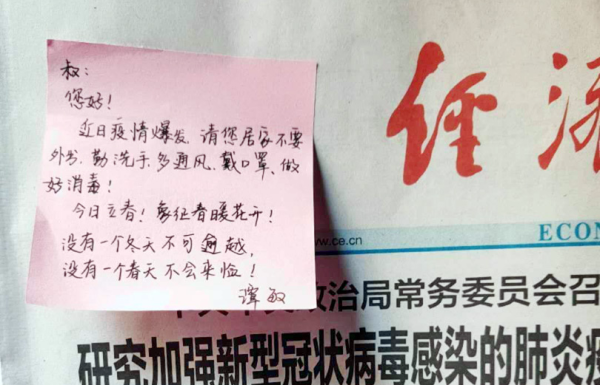 叔：
您好！
近日疫情爆发，请您居家不要
外出、勤洗手、多通风、戴口罩、做
好消毒！
今日立春！象征春暖花开！
没有一个冬天不可逾越，
没有一个春天不会来临！
谭敏
经济
www.ce.cn
ECON
政治局常务委员会召
研究加强新型冠状病毒感染的肺炎疫